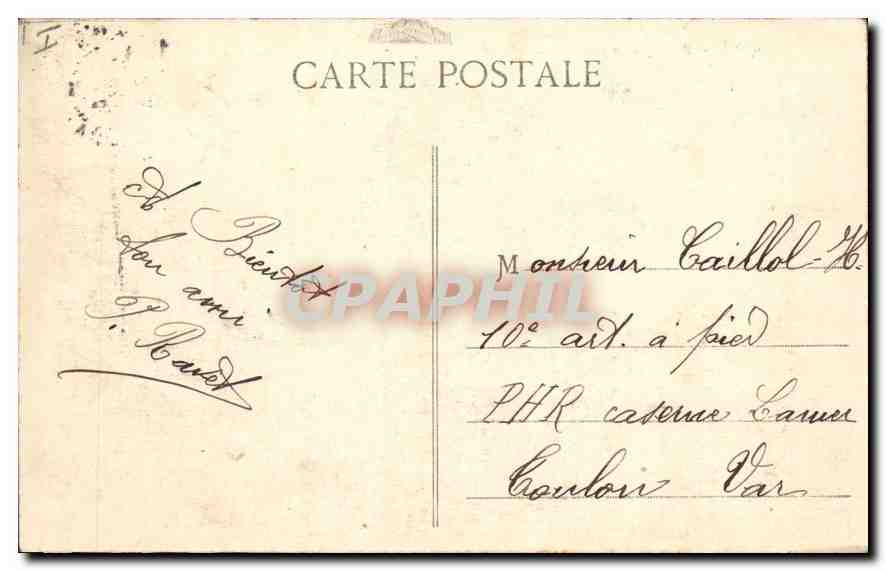 CARTE POSTALE
A Bientot
ton ami
P. Ravet
Monsieur Caillol. H.
10e art. à pied
PHR caserne Lamer
Toulon Var
CPAPHIL